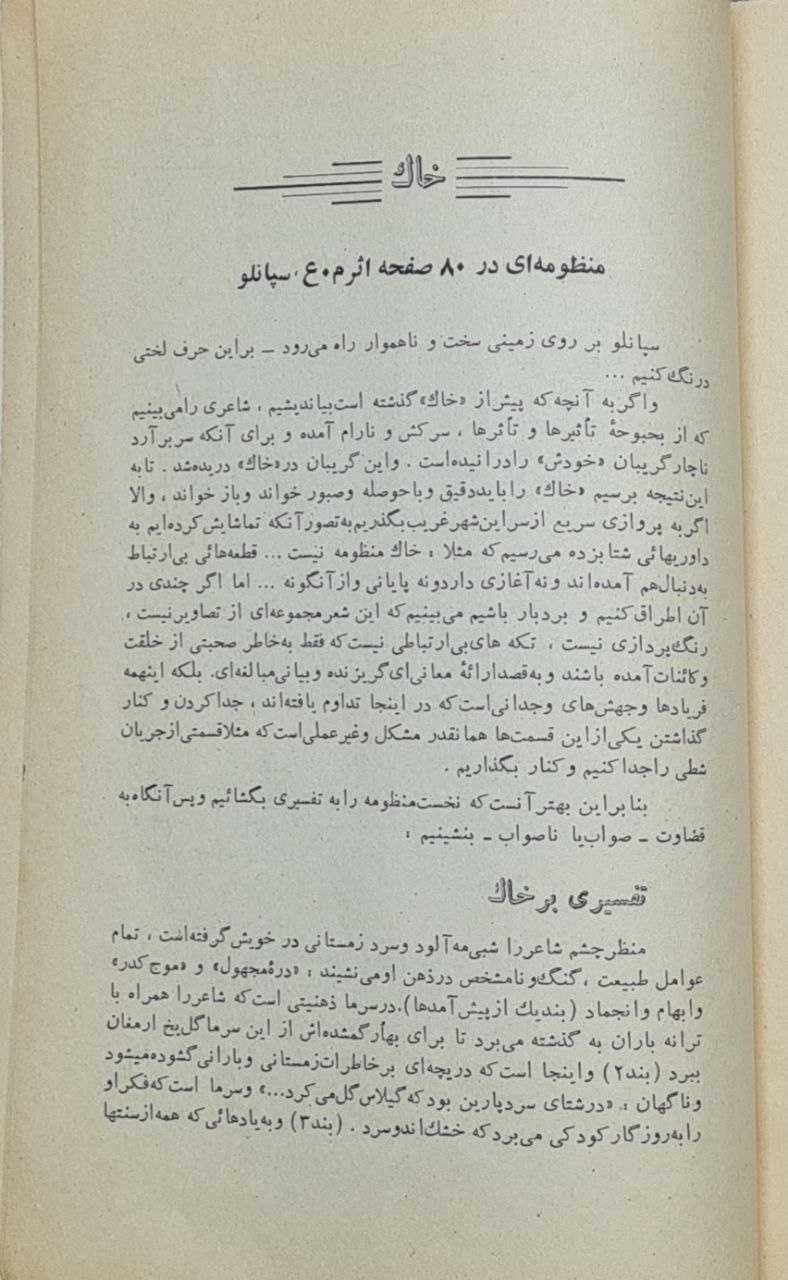 خاك
منظومه‌ای در ۸۰ صفحه اثر م۰ع۰ سپانلو
سپانلو بر روی زمینی سخت و ناهموار راه می‌رود ــ براین حرف لختی
درنگ‌كنیم ...
واگر به آنچه‌كه پیش‌از «خاك» گذشته است‌بیاندیشیم ، شاعری رامی‌بینیم
كه از بحبوحهٔ تأثیرها و تأثرها ، سركش و نارام آمده و برای آنكه سربرآرد
ناچار گریبان «خودش» رادرانیده‌است . واین گریبان در «خاك» دریده‌شد . تابه
این‌نتیجه برسیم «خاك» را بایددقیق وباحوصله وصبور خواند وباز خواند ، والا
اگربه پروازی سریع ازسراین‌شهر غریب‌بگذریم‌به‌تصورآنكه تماشایش‌كرده‌ایم به
داوریهائی شتابزده می‌رسیم‌كه مثلا : خاك منظومه نیست ... قطعه‌هائی بی‌ارتباط
به‌دنبال‌هم آمده‌اند ونه‌آغازی داردونه پایانی وازآنگونه ... اما اگر چندی در
آن اطراق‌كنیم و بردبار باشیم می‌بینیم‌كه این شعرمجموعه‌ای از تصاویرنیست ،
رنگ‌پردازی نیست ، تكه های‌بی‌ارتباطی نیست‌كه فقط به‌خاطر صحبتی از خلقت
وكائنات‌آمده باشند وبه‌قصدارائهٔ معانی‌ای‌گریزنده وبیانی‌مبالغه‌ای. بلكه اینهمه
فریادها وجهش‌های وجدانی‌است‌كه در اینجا تداوم یافته‌اند ، جداكردن و كنار
گذاشتن یكی‌ازاین قسمت‌ها همانقدر مشكل وغیرعملی‌است‌كه مثلاقسمتی‌ازجریان
شطی راجداكنیم وكنار بگذاریم .
بنابراین بهترآنست‌كه نخست‌منظومه رابه تفسیری بگشائیم وپس‌آنگاه‌به
قضاوت ــ صواب‌یا ناصواب ــ بنشینیم :
تفسیری بر خاك
منظرچشم شاعررا شبی‌مه‌آلود وسرد زمستانی در خویش‌گرفته‌است ، تمام
عوامل طبیعت ، گنگ‌ونامشخص درذهن اومی‌نشیند : «درهٔ‌مجهول» و «موج‌كدر»
وابهام وانجماد (بندیك ازپیش‌آمدها).درسرما ذهنیتی است‌كه شاعررا همراه با
ترانه باران به گذشته می‌برد تا برای بهارگمشده‌اش از این سرماگل‌یخ ارمغان
ببرد (بند۲) واینجا است‌كه دریچه‌ای برخاطرات‌زمستانی وبارانی‌گشوده‌میشود
وناگهان : «درشتای سردپارین بودكه‌گیلاس‌گل‌می‌كرد...» وسرما است‌كه‌فكراو
رابه‌روزگاركودكی می‌بردكه خشك‌اندوسرد . (بند۳) وبه‌یادهائی‌كه همه‌ازسنتها